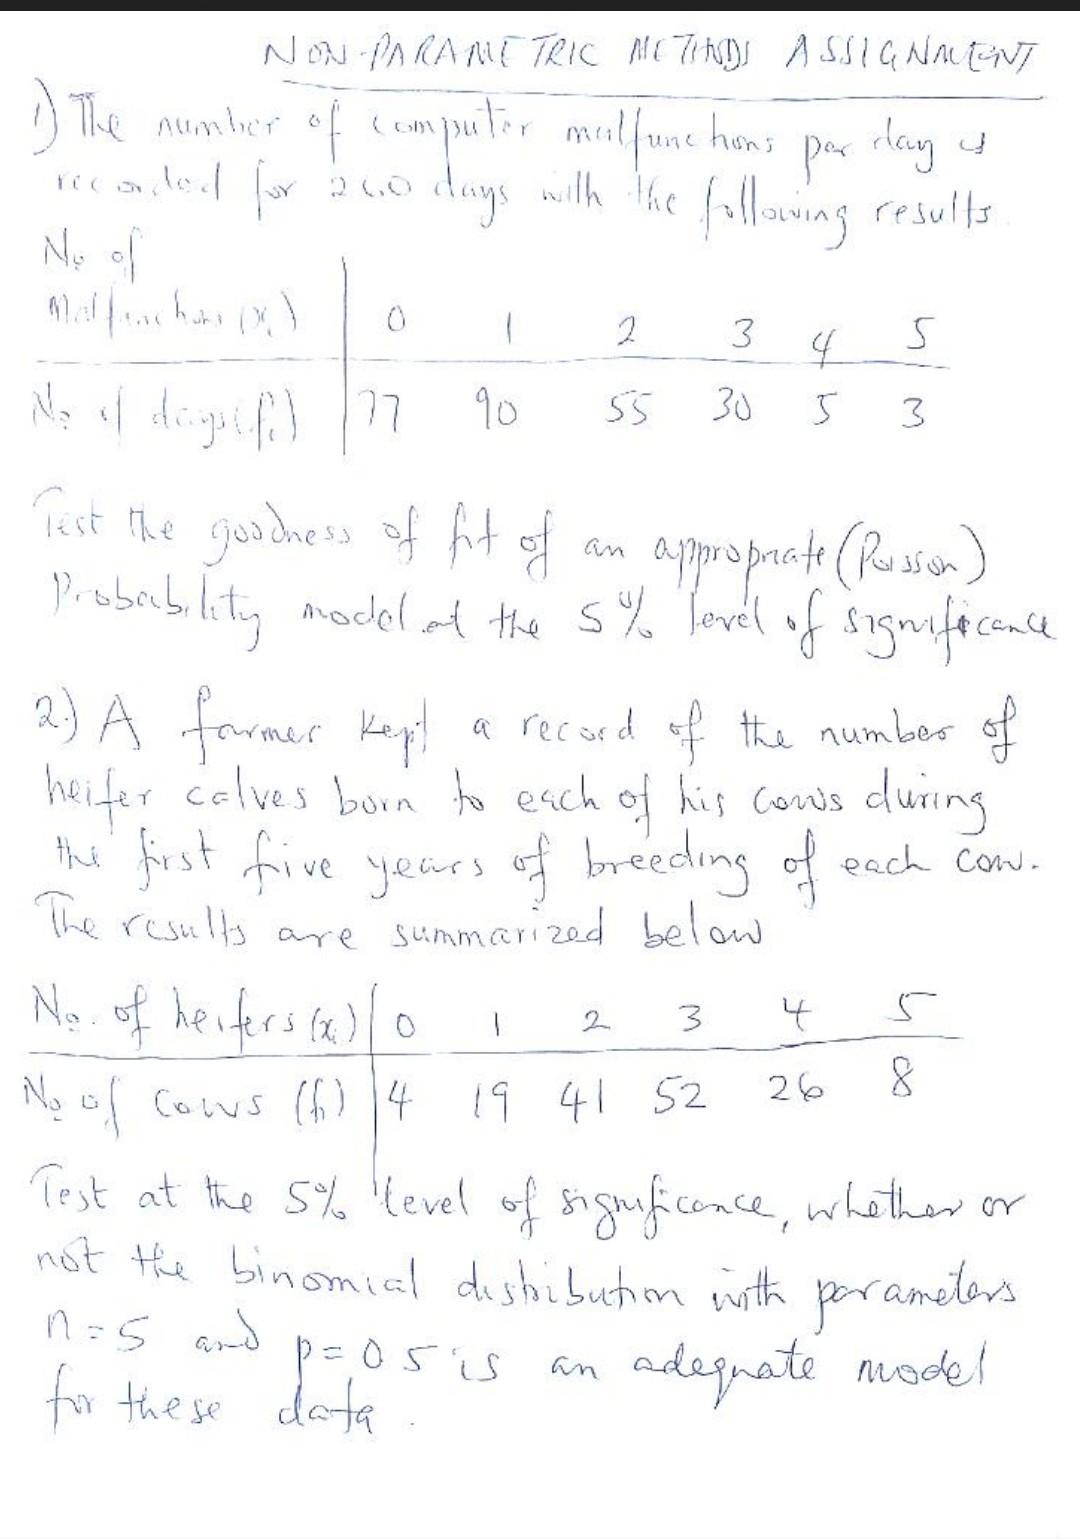 NON-PARAMETRIC METHODS ASSIGNMENT
1) The number of computer malfunctions per day is
recorded for 260 days with the following results.
No of
Malfunctions (xi) 0 1 2 3 4 5
No of days (fi) 77 90 55 30 5 3
Test the goodness of fit of an appropriate (Poisson)
Probability model at the 5% level of significance
2.) A farmer kept a record of the number of
heifer calves born to each of his cows during
the first five years of breeding of each cow.
The results are summarized below
No. of heifers (xi) 0 1 2 3 4 5
No of cows (fi) 4 19 41 52 26 8
Test at the 5% level of significance, whether or
not the binomial distribution with parameters
n=5 and p=0.5 is an adequate model
for these data.